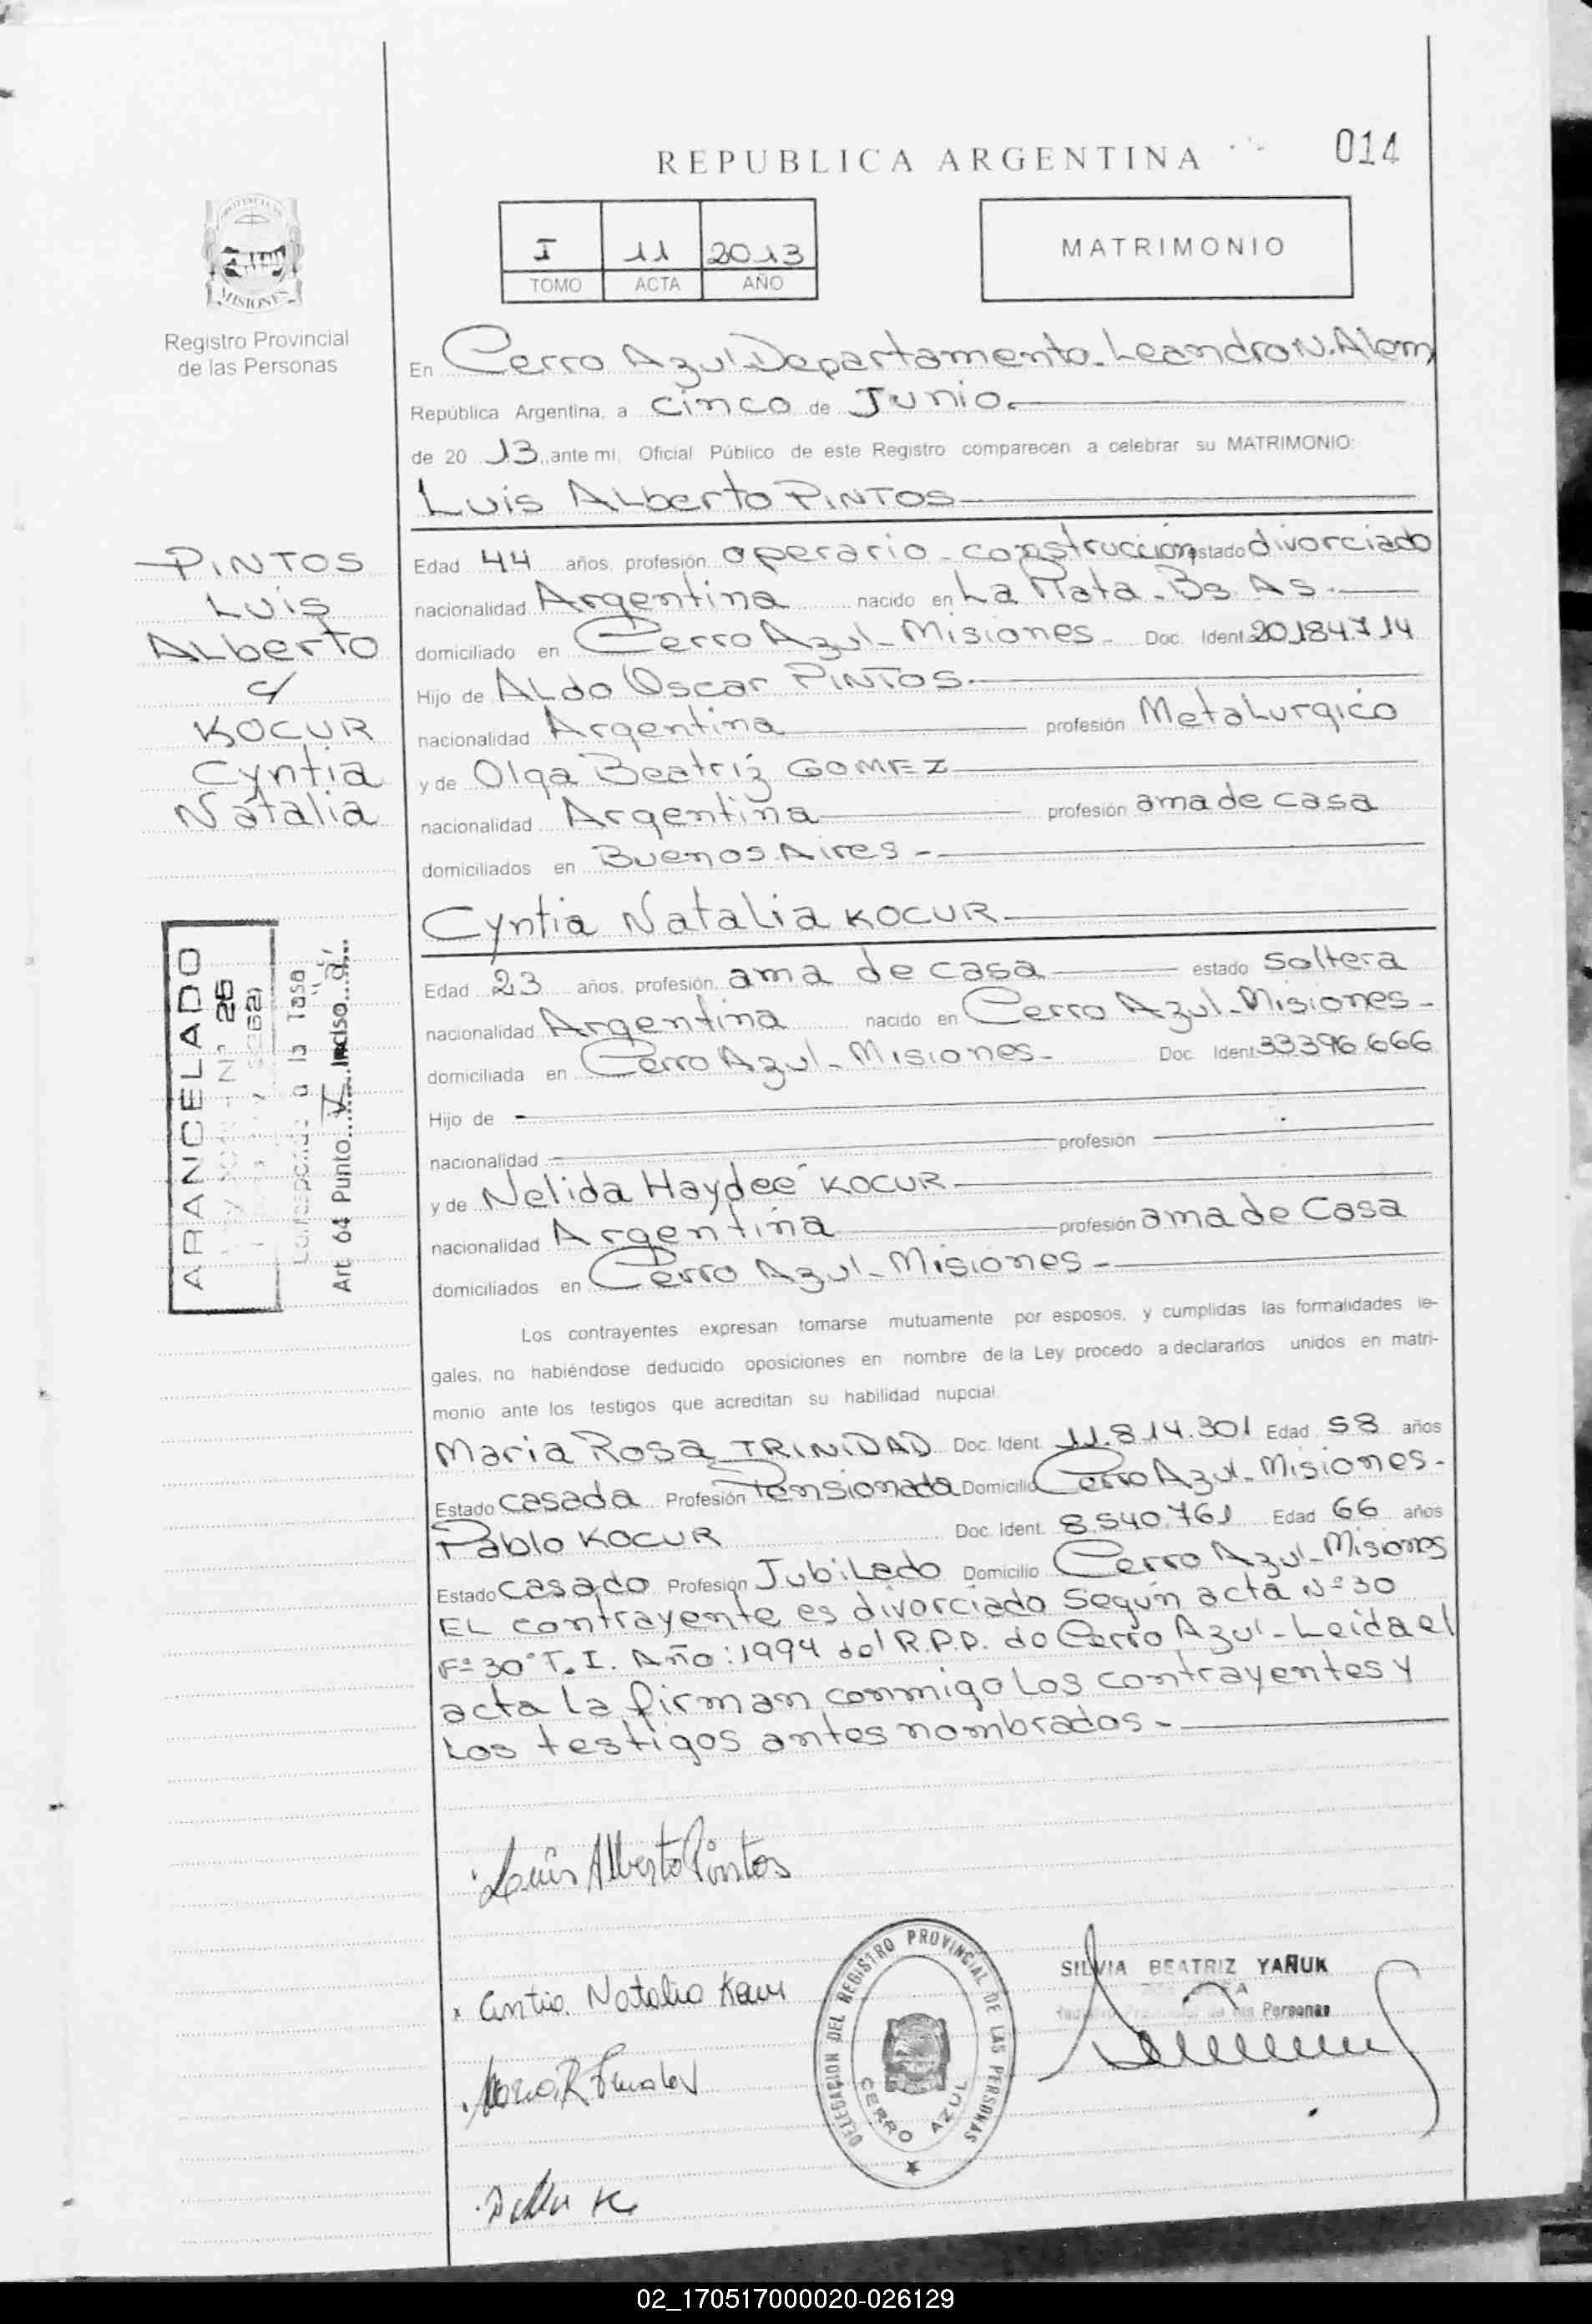 REPUBLICA ARGENTINA
014
PROVINCIA DE
MISIONES
Registro Provincial
de las Personas
I 11 2013
TOMO ACTA AÑO
MATRIMONIO
En Cerro Azul Departamento Leandro N. Alem
República Argentina, a cinco de Junio.
de 20 13, ante mi, Oficial Público de este Registro comparecen a celebrar su MATRIMONIO:
Luis Alberto PINTOS
PINTOS
Luis
Alberto
c/
KOCUR
Cyntia
Natalia
Edad 44 años, profesión operario construcción estado divorciado
nacionalidad Argentina nacido en La Plata - Bs. As.
domiciliado en Cerro Azul - Misiones - Doc. Ident. 20.184.714
Hijo de Aldo Oscar PINTOS
nacionalidad Argentina profesión Metalurgico
y de Olga Beatriz GOMEZ
nacionalidad Argentina profesión ama de casa
domiciliados en Buenos Aires -
Cyntia Natalia KOCUR
Edad 23 años, profesión ama de casa estado soltera
nacionalidad Argentina nacido en Cerro Azul - Misiones -
domiciliada en Cerro Azul - Misiones - Doc. Ident. 33.396.666
Hijo de -
nacionalidad profesión
y de Nelida Haydeé KOCUR
nacionalidad Argentina profesión ama de Casa
domiciliados en Cerro Azul - Misiones -
ARANCELADO
Nº 25
a la Tasa
Art. 64 Punto V Inciso "a"
Los contrayentes expresan tomarse mutuamente por esposos, y cumplidas las formalidades le-
gales, no habiéndose deducido oposiciones en nombre de la Ley procedo a declararlos unidos en matri-
monio ante los testigos que acreditan su habilidad nupcial.
Maria Rosa TRINIDAD Doc. Ident. 11.814.301 Edad 58 años
Estado casada Profesión Pensionada Domicilio Cerro Azul - Misiones -
Pablo KOCUR Doc. Ident. 8.540.761 Edad 66 años
Estado casado Profesión Jubilado Domicilio Cerro Azul - Misiones
EL contrayente es divorciado Según acta Nº 30
Fº 30º T. I. Año: 1994 del R.P.P. de Cerro Azul - Leida el
acta la firman conmigo los contrayentes y
los testigos antes nombrados -
Luis Alberto Pintos
Natalia
DELEGACION DEL REGISTRO PROVINCIAL DE LAS PERSONAS
CERRO AZUL
SILVIA BEATRIZ YAÑUK
Registro Provincial de las Personas
02_170517000020-026129